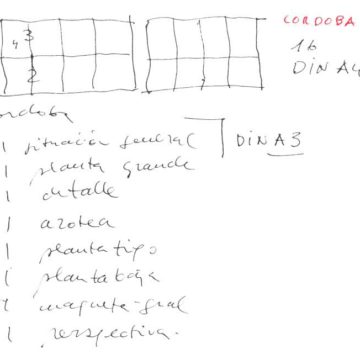 CORDOBA
16
DIN A4
3
4
2
ordoba
1 situación general
DIN A3
1 planta grande
1 detalle
1 azotea
1 planta tipo
1 planta baja
1 maqueta gral
1 perspectiva.